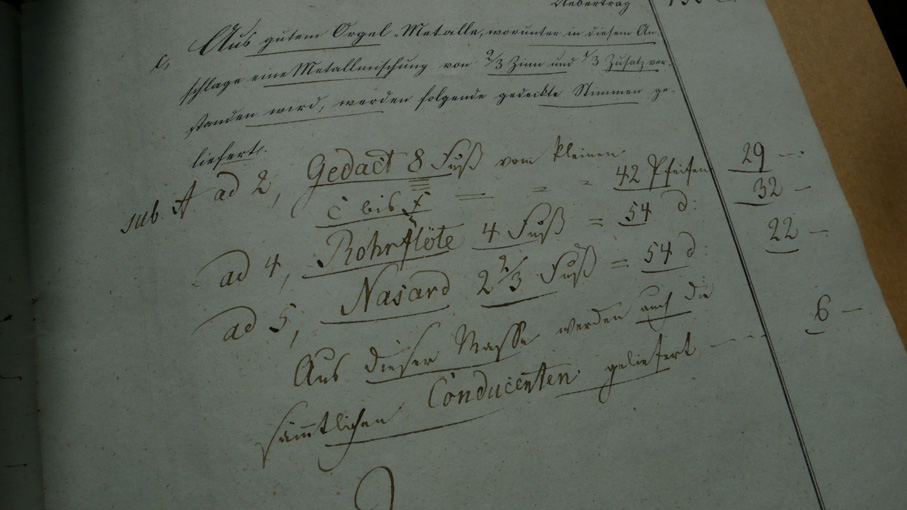 Uebertrag
c, Aus gutem Orgel-Metalle, worunter in diesem An-
schlage eine Metallmischung von 2/3 Zinn und 1/3 Zusatz ver-
standen wird, werden folgende gedeckte Stimmen ge-
liefert:
sub. A ad 2, Gedact 8 Fuß vom kleinen 29 —
C bis f = = = 42 Pfeifen 32 —
ad 4, Rohrflöte 4 Fuß = 54 d: 22 —
ad 5, Nasard 2 2/3 Fuß = 54 d:
Aus dieser Masse werden auch die 6 —
sämmtlichen Conducenten geliefert